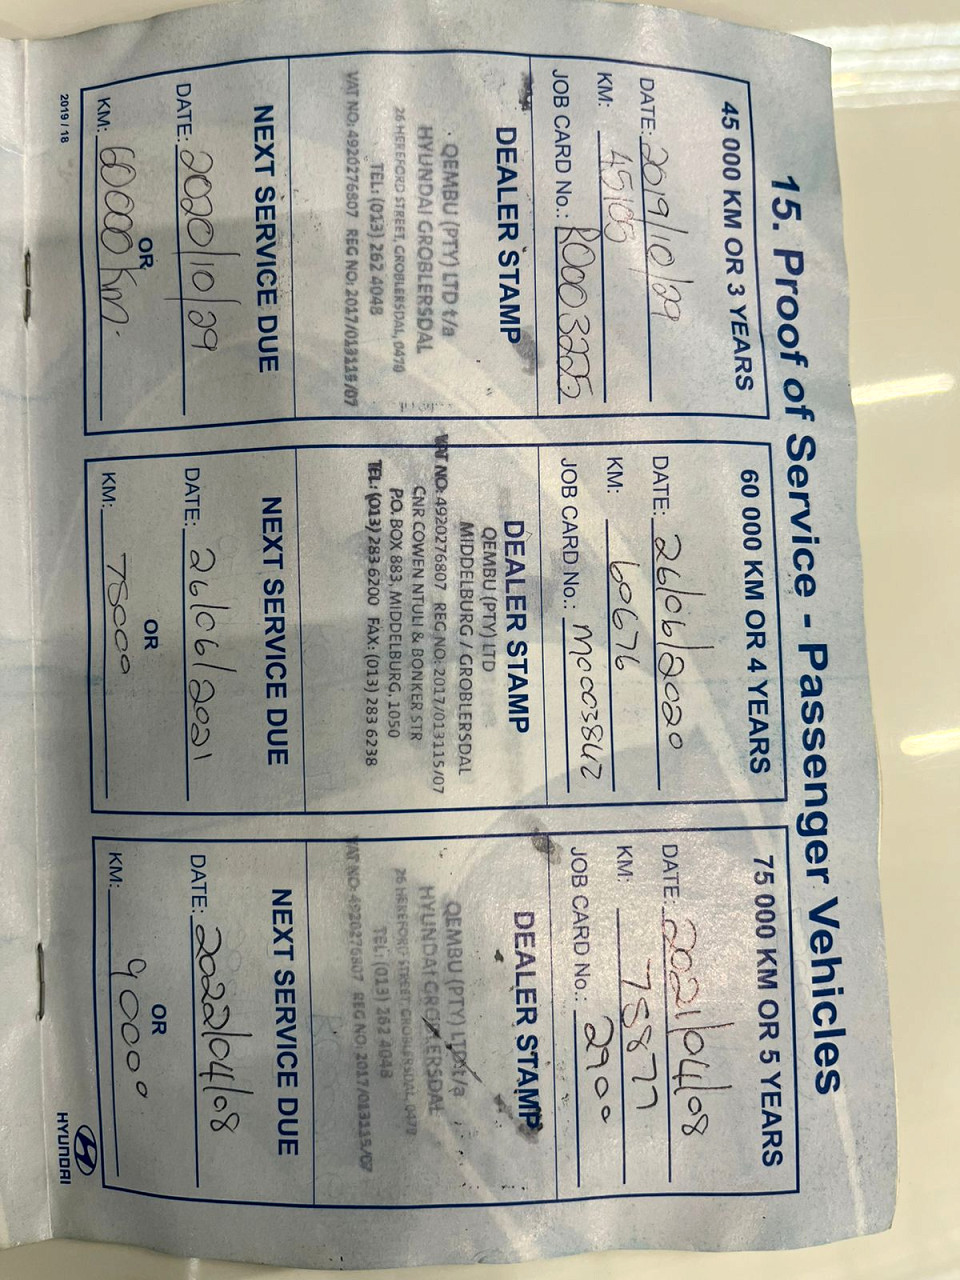 15. Proof of Service - Passenger Vehicles
45 000 KM OR 3 YEARS
DATE: 2019/10/29
KM: 45105
JOB CARD No.: R0003225
DEALER STAMP
QEMBU (PTY) LTD t/a
HYUNDAI GROBLERSDAL
26 HEREFORD STREET, GROBLERSDAL, 0470
TEL: (013) 262 4048
VAT NO: 4920276807 REG NO: 2017/013115/07
NEXT SERVICE DUE
DATE: 2020/10/29
OR
KM: 60000 km.
60 000 KM OR 4 YEARS
DATE: 26/06/2020
KM: 60676
JOB CARD No.: M0003842
DEALER STAMP
QEMBU (PTY) LTD
MIDDELBURG / GROBLERSDAL
VAT NO: 4920276807 REG NO: 2017/013115/07
CNR COWEN NTULI & BONKER STR
P.O. BOX 883, MIDDELBURG, 1050
TEL: (013) 283 6200 FAX: (013) 283 6238
NEXT SERVICE DUE
DATE: 26/06/2021
OR
KM: 75000
75 000 KM OR 5 YEARS
DATE: 2021/04/08
KM: 75877
JOB CARD No.: 2900
DEALER STAMP
QEMBU (PTY) LTD t/a
HYUNDAI GROBLERSDAL
26 HEREFORD STREET, GROBLERSDAL, 0470
TEL: (013) 262 4048
VAT NO: 4920276807 REG NO: 2017/013115/07
NEXT SERVICE DUE
DATE: 2022/04/08
OR
KM: 90000
2019 / 18
HYUNDAI